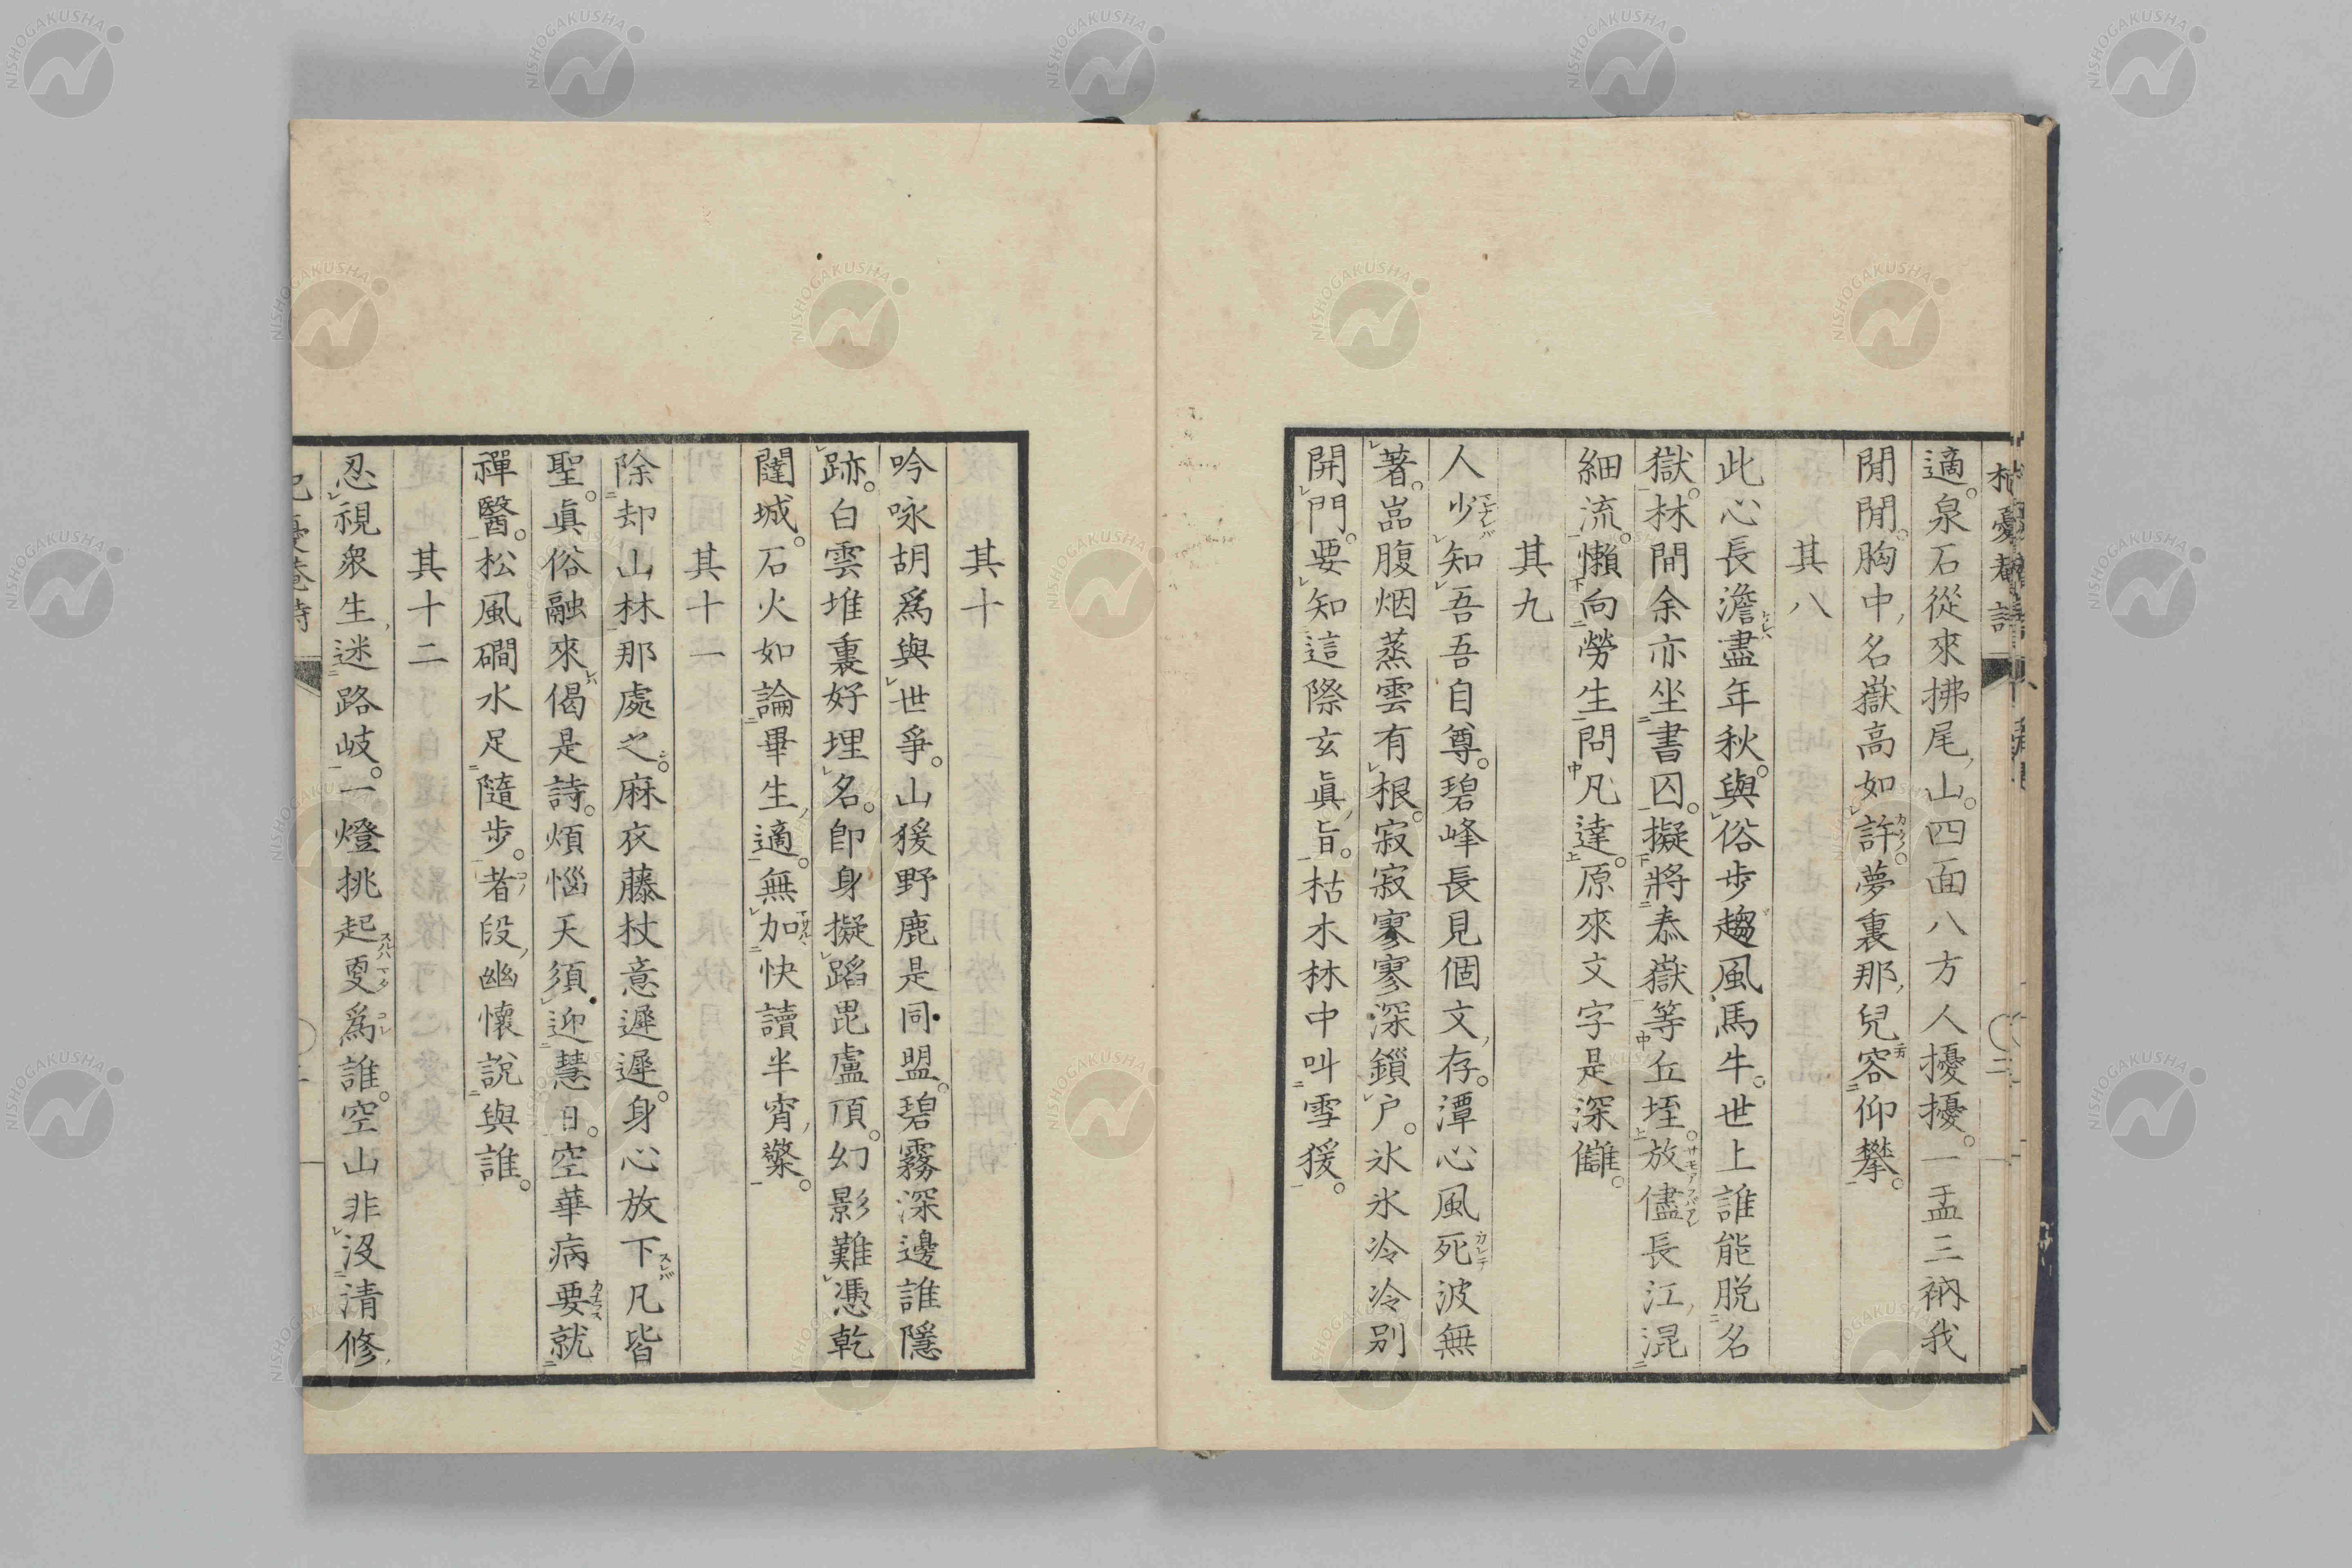 適。泉石從來拂尾山。四面八方人擾擾。一盂三衲我
閒閒。胸中名嶽高如許。夢裏那兒容仰攀。
其八
此心長澹盡年秋。與俗步趨風馬牛。世上誰能脱名
獄。林間余亦坐書囚。擬將泰嶽等丘垤。放儘長江混
細流。懶向勞生問凡達。原來文字是深讎。
其九
人少知吾吾自尊。碧峰長見個文存。潭心風死波無
著。嵓腹烟蒸雲有根。寂寂寥寥深鎖戸。氷氷冷冷別
開門。要知這際玄眞旨。枯木林中叫雪猨。
其十
吟咏胡爲與世爭。山猨野鹿是同盟。碧霧深邊誰隱
跡。白雲堆裏好埋名。卽身擬蹈毘盧頂。幻影難憑乾
闥城。石火如論畢生適。無加快讀半宵檠。
其十一
除却山林那處之。麻衣藤杖意遲遲。身心放下凡皆
聖。眞俗融來偈是詩。煩惱天須迎慧日。空華病要就
禪醫。松風磵水足隨步。者段幽懷説與誰。
其十二
忍視衆生迷路岐。一燈挑起更爲誰。空山非沒清修
NISHOGAKUSHA